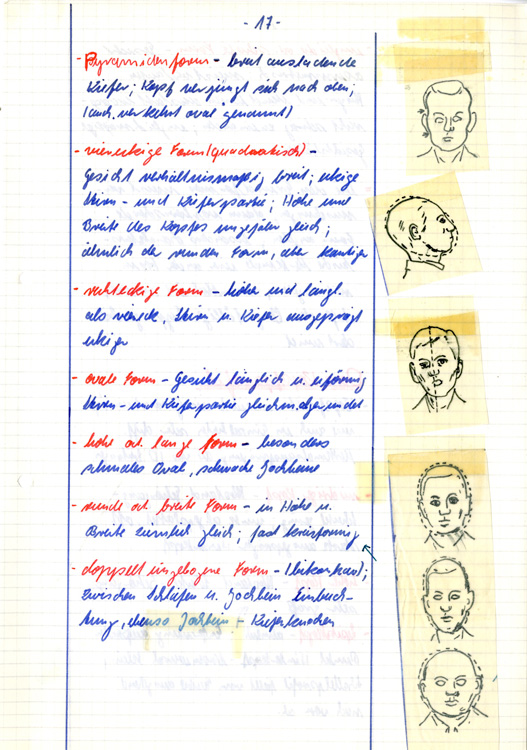 - 17 -
- Pyramidenform - breit ausladende
Kiefer; Kopf verjüngt sich nach oben;
(auch verkehrt oval genannt)
- viereckige Form (quadratisch) -
Gesicht verhältnismäßig breit; eckige
Stirn- und Kieferpartie; Höhe und
Breite des Kopfes ungefähr gleich;
ähnlich der runden Form, aber kantiger
- rechteckige Form - höher und längl.
als viereck., Stirn u. Kiefer ausgeprägt
eckiger
- ovale Form - Gesicht länglich u. eiförmig
Stirn- und Kieferpartie gleichm. abgerundet
- hohe od. lange Form - besonders
schmales Oval, schwache Jochbeine
- runde od. breite Form - in Höhe u.
Breite ziemlich gleich; fast kreisförmig
- doppelt eingebogene Form - (bikonkav);
zwischen Schläfen u. Jochbein Einbuch-
tung, ebenso Jochbein - Kieferknochen